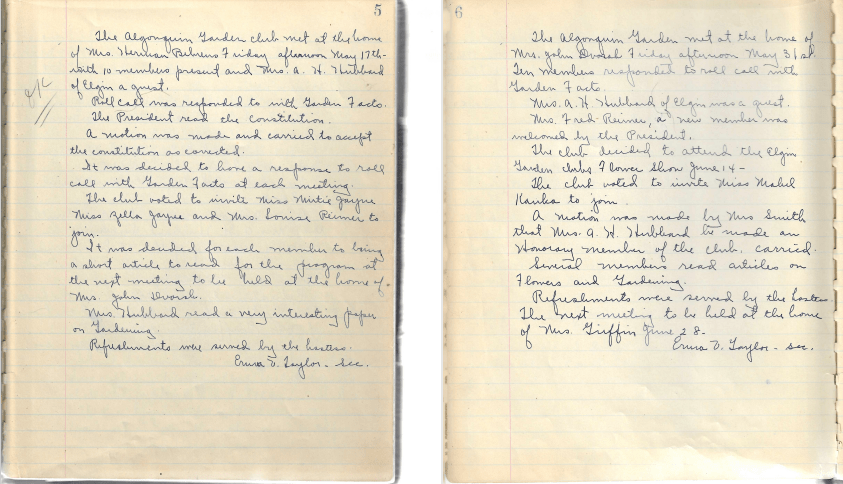 5
The Algonquin Garden club met at the home
of Mrs. Herman Behrens Friday afternoon May 17th-
with 10 members present and Mrs. A. H. Hubbard
of Elgin a guest.
Roll call was responded to with Garden Facts.
The President read the Constitution.
A motion was made and carried to accept
the constitution as corrected.
It was decided to have a response to roll
call with Garden Facts at each meeting.
The club voted to invite Miss Mintie Jayne
Miss Zella Jayne and Mrs. Louise Reimer to
join.
It was decided for each member to bring
a short article to read for the program at
the next meeting to be held at the home of
Mrs. John Dvorak.
Mrs. Hubbard read a very interesting paper
on Gardening.
Refreshments were served by the hostess.
Erma D. Taylor - sec.
6
The Algonquin Garden met at the home of
Mrs. John Dvorak Friday afternoon May 31st.
Ten members responded to roll call with
Garden Facts
Mrs. A. H. Hubbard of Elgin was a guest.
Mrs. Fred Reimer, a new member was
welcomed by the President.
The club decided to attend the Elgin
Garden clubs Flower Show June 14-
The club voted to invite Miss Mabel
to join.
A motion was made by Mrs Smith
that Mrs. A. H. Hubbard be made an
Honorary member of the club. carried.
Several members read articles on
Flowers and Gardening.
Refreshments were served by the hostess
The next meeting to be held at the home
of Mrs. Griffin June 28-
Erma D. Taylor - sec.